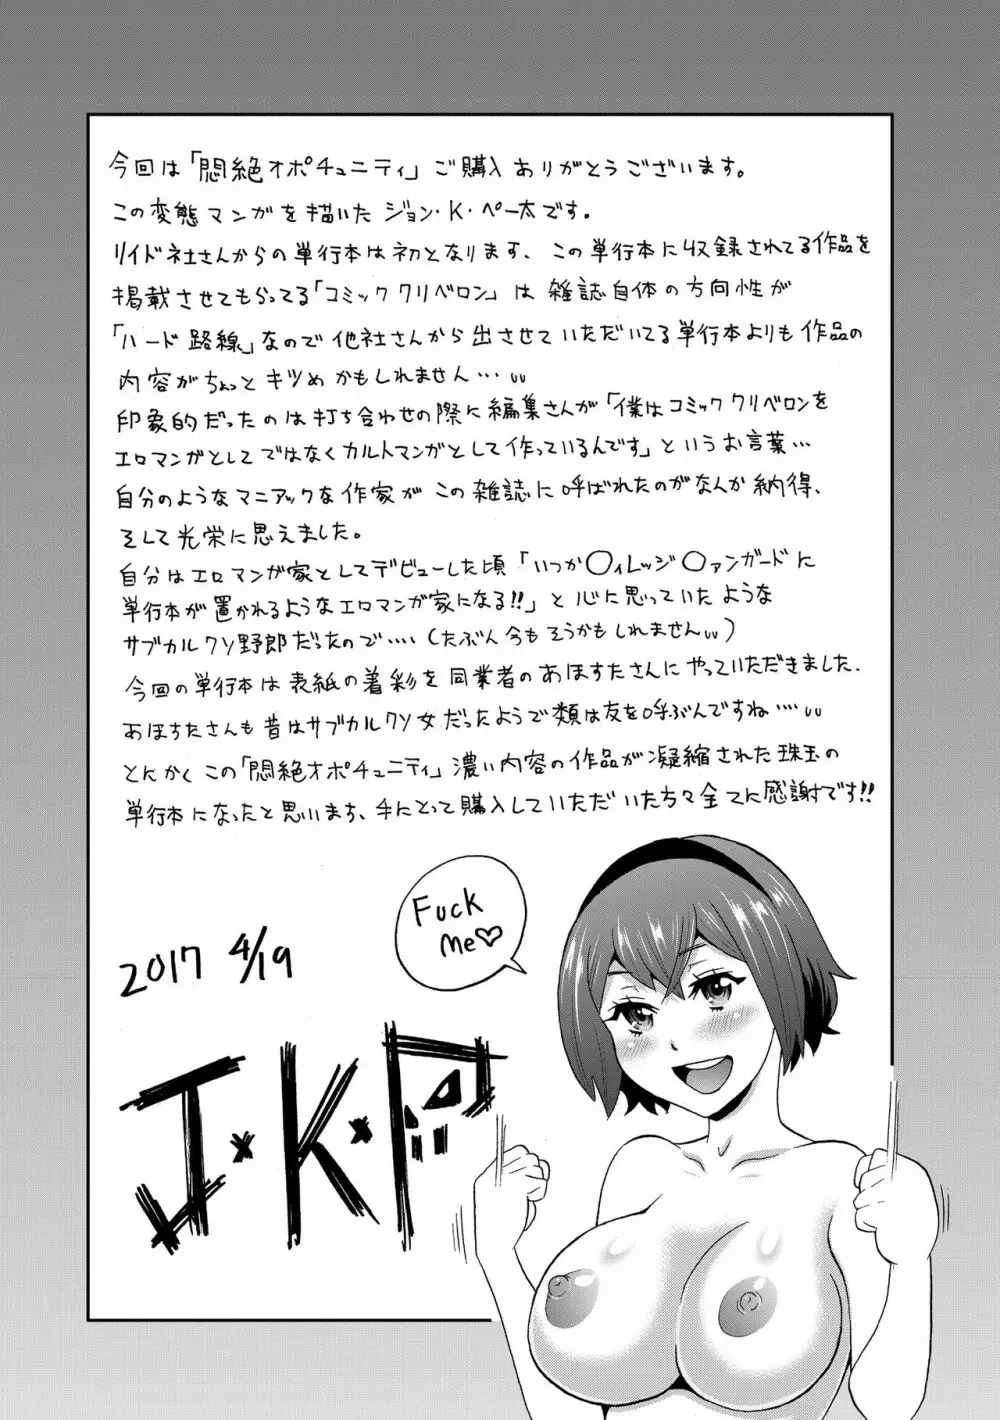 今回は「悶絶オポチュニティ」ご購入ありがとうございます。
この変態マンガを描いたジョン・K・ペー太です。
リイド社さんからの単行本は初となります、この単行本に収録されてる作品を
掲載させてもらってる「コミッククリベロン」は雑誌自体の方向性が
「ハード路線」なので他社さんから出させていただいてる単行本よりも作品の
内容がちょっとキツめかもしれません…
印象的だったのは打ち合わせの際に編集さんが「僕はコミッククリベロンを
エロマンガとしてではなくカルトマンガとして作っているんです」というお言葉…
自分のようなマニアックな作家がこの雑誌に呼ばれたのがなんか納得、
そして光栄に思えました。
自分はエロマンガ家としてデビューした頃「いつか〇ィレッジ〇ァンガードに
単行本が置かれるようなエロマンガ家になる!!」と心に思っていたような
サブカルクソ野郎だったので‥‥(たぶん今もそうかもしれませんιι)
今回の単行本は表紙の着彩を同業者のあほすたさんにやっていただきました.
あほすたさんも昔はサブカルクソ女だったようで類は友を呼ぶんですね‥‥ιι
とにかくこの「悶絶オポチュニティ」濃い内容の作品が凝縮された珠玉の
単行本になったと思います、手にとって購入していただいた方々全てに感謝です!!
Fuck
Me♡
2017 4/19
J・K・P